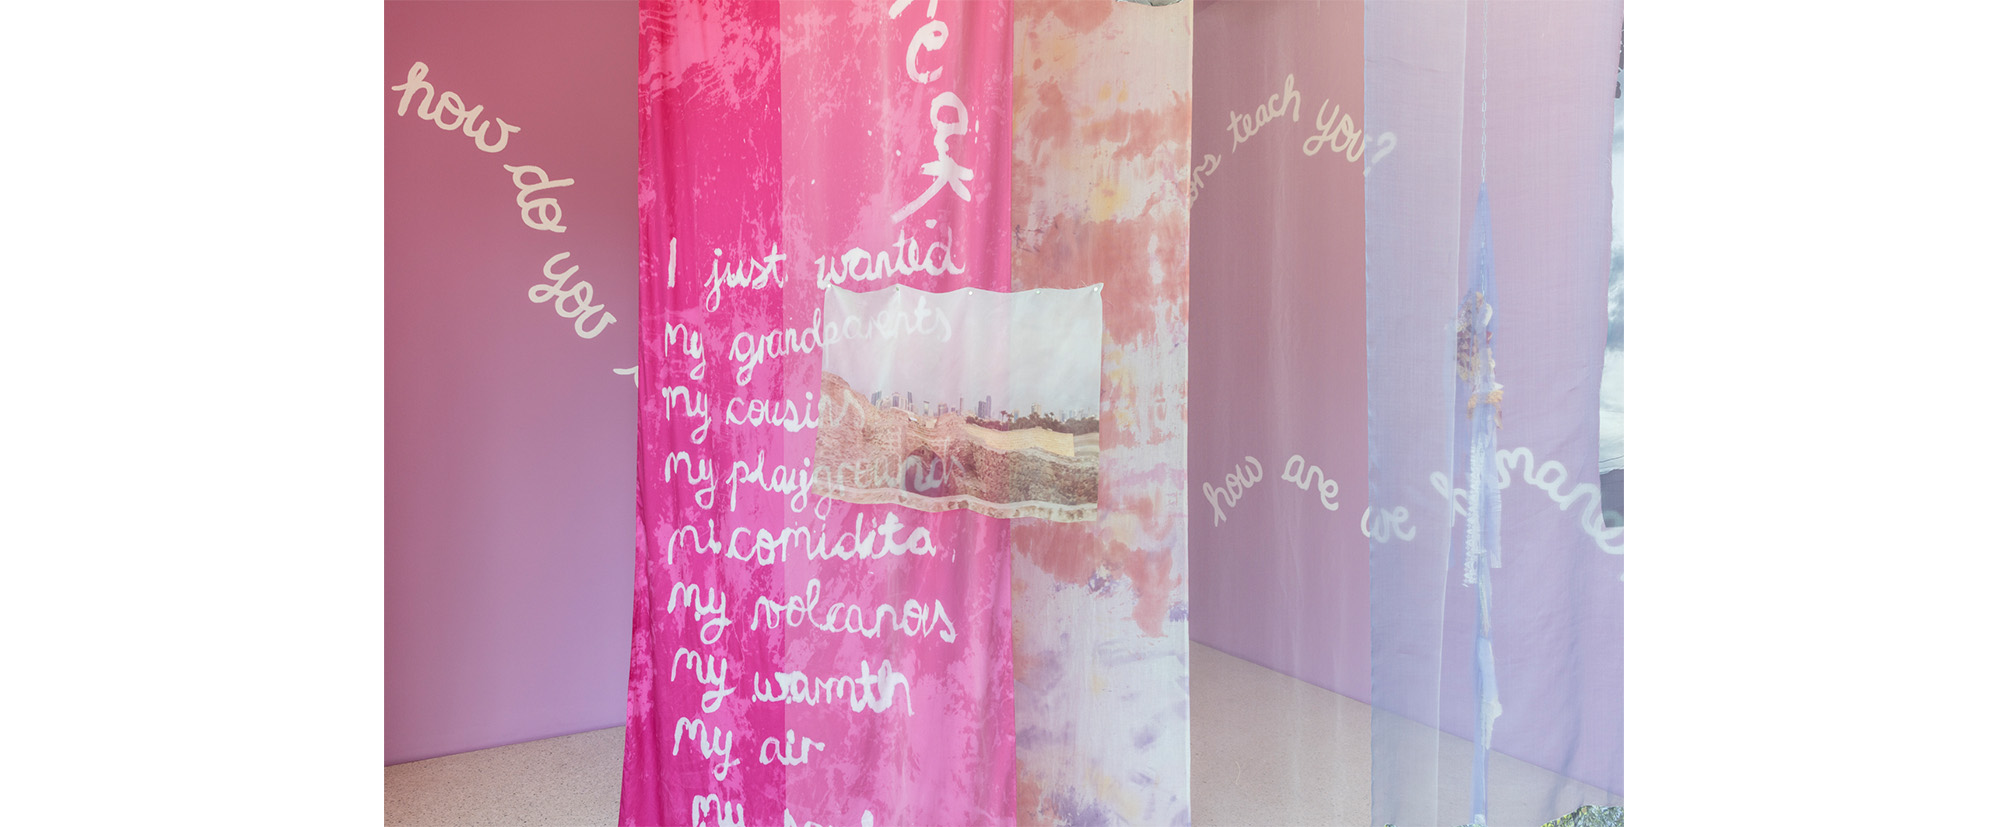 how do you
eak.
I just wanted
my grandparents
my cousins
my playgrounds
mi comidita,
my volcanoes
my warmth
my air
my
teach you?
how are we humans